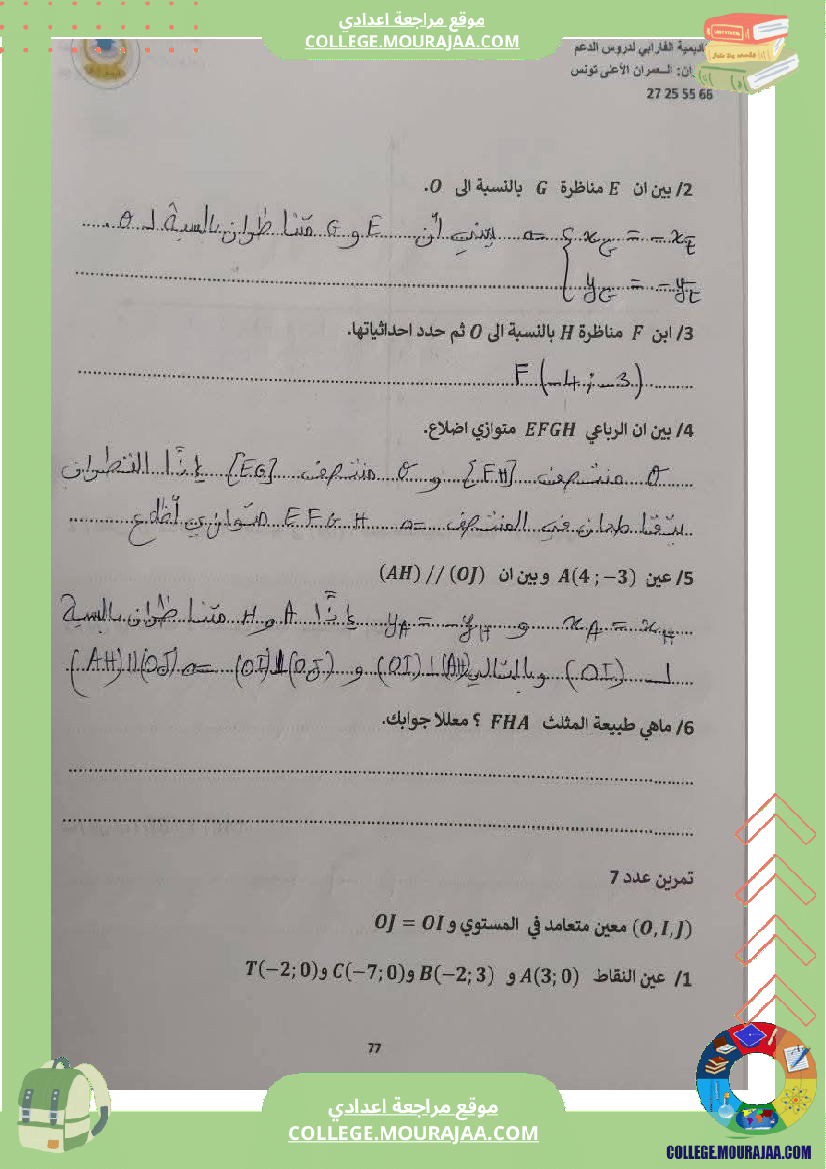 موقع مراجعة اعدادي
COLLEGE.MOURAJAA.COM
ديمية الفارابي لدروس الدعم
ان: العمران الأعلى تونس
27 25 55 66
2/ بين ان E مناظرة G بالنسبة الى O.
{ x_G = -x_E = يعني أن E و G متناظران بالنسبة لـ O
y_G = -y_E
3/ ابن F مناظرة H بالنسبة الى O ثم حدد احداثياتها.
F(-4 ; -3)
4/ بين ان الرباعي EFGH متوازي اضلاع.
O منتصف [FH] و O منتصف [EG] إذا القطران
يتقاطعان في المنتصف = EFGH متوازي أضلاع
5/ عين A(4 ; -3) وبين ان (AH) // (OJ)
x_A = x_H و y_A = -y_H إذا A و H متناظران بالنسبة
لـ (OI) وبالتالي (OI)⊥(AH) و (OI)⊥(OJ) = (AH)//(OJ)
6/ ماهي طبيعة المثلث FHA ؟ معللا جوابك.
تمرين عدد 7
(O,I,J) معين متعامد في المستوي و OJ = OI
1/ عين النقاط A(3;0) و B(-2;3) و C(-7;0) و T(-2;0)
77
موقع مراجعة اعدادي
COLLEGE.MOURAJAA.COM
COLLEGE.MOURAJAA.COM